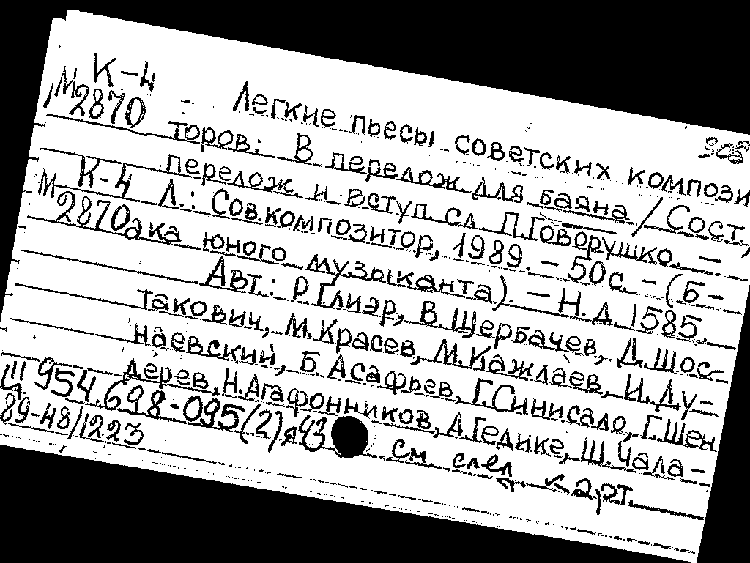 К-4
М 2870 - Легкие пьесы советских компози
торов: В перелож для баяна / Сост,
перелож и вступ сл П.Говорушко. –
М К-4 Л.: Сов.композитор, 1989. – 50с. – (Б–
2870 ака юного музыканта) – Н.д. 1585.
Авт.: Р.Глиэр, В.Щербачев, Д.Шос–
такович, М.Красев, М.Кажлаев, И.Ду–
наевский, Б.Асафьев, Г.Синисало, Г.Шен
дерев, Н.Агафонников, А.Гедике, Ш.Чала–
Щ 954.698-095(2)я43 см. след. карт.
89-48/1223